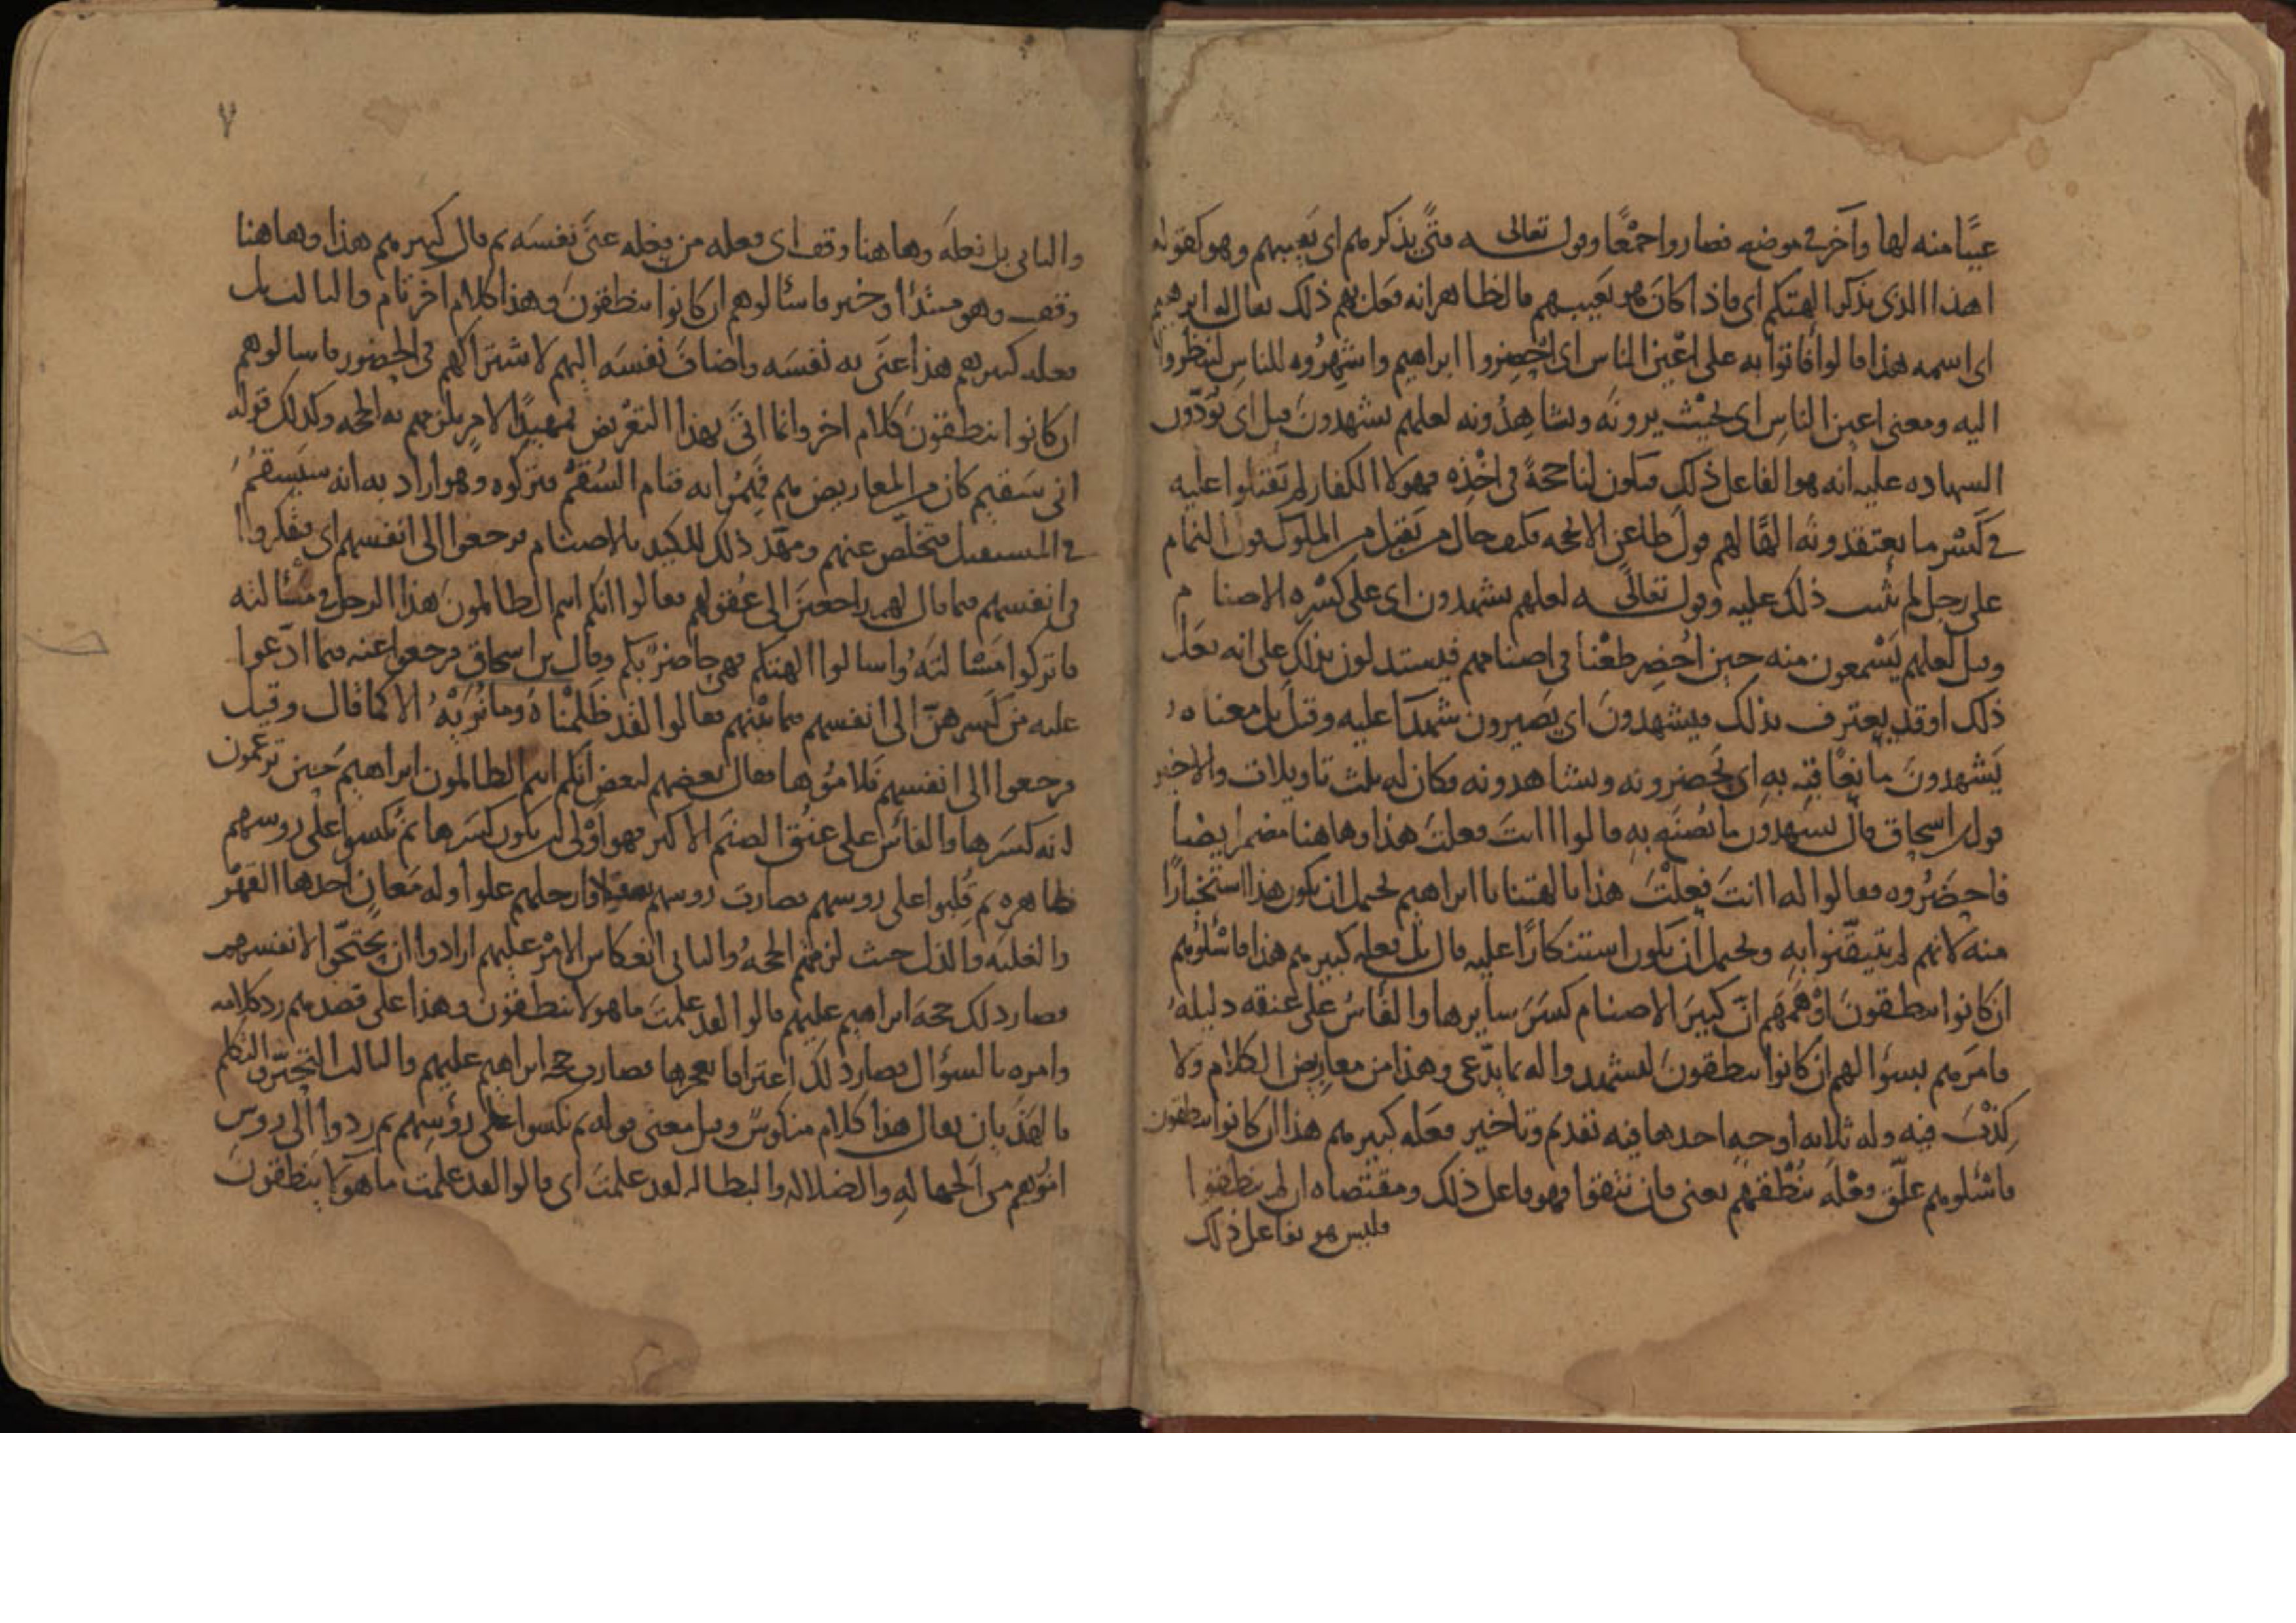 عيبًا منه لها وآخر في موضع فصاروا جمعًا وقول تعالى فتى يذكرهم اى يعيبهم وهو كقوله
اهذا الذى يذكر الهتكم اى ماذا كان هو يعيبهم فالظاهر انه فعل بهم ذلك يقال له ابرهيم
اى اسمه هذا قالوا فاتوا به على اعين الناس اى احضروا ابراهيم واشهروه للناس لينظروا
اليه ومعنى اعين الناس اى بحيث يرونه ويشاهدونه لعلهم يشهدون قيل اى يؤدون
الشهاده عليه انه هو الفاعل ذلك فيكون لنا حجة في اخذه فهولا الكفار لم يقبلوا عليه
في كسر ما يعتقدونه الهًا لهم قول طاعن الا بحجه فكيف حال من يقبل من الملوك قول النمام
على رجل لم يثبت ذلك عليه وقول تعالى لعلهم يشهدون اى على كسره الاصنام
وقيل لعلهم يسمعون منه حين احضر طعنا في اصنامهم فيستدلون بذلك على انه فعل
ذلك او قد يعترف بذلك فيشهدون اى يصيرون شهدآ عليه وقيل بل معناه
يشهدون ما نعاقبه به اى يحضرونه ويشاهدونه فكان له ثلث تاويلات والاخير
قول ابن اسحاق قال يشهدون ما نصنع به قالوا اانت فعلت هذا وهاهنا مضمر ايضا
فاحضروه فقالوا له اانت فعلت هذا بالهتنا يا ابراهيم يحتمل ان يكون هذا استخبارًا
منه لانهم لم يتيقنوا به ويحتمل ان يكون استنكارًا عليه قال بل فعله كبيرهم هذا فاسئلوهم
ان كانوا ينطقون اوهمهم ان كبير الاصنام كسر سايرها والفاس على عنقه دليله
فامرهم بسؤالهم ان كانوا ينطقون ليشهدوا له بما يدعى وهذا من معاريض الكلام ولا
كذب فيه وله ثلاثه اوجه احدها فيه تقديم وتاخير فعله كبيرهم هذا ان كانوا ينطقون
فاسئلوهم علق فعله بنطقهم يعنى فان نطقوا فهو فاعل ذلك ومقتضاه ان لم ينطقوا
فليس هو بفاعل ذلك
٧
والثانى بل فعله وهاهنا وقف اى فعله من فعله عنى نفسه ثم قال كبيرهم هذا وهاهنا
وقف وهو مبتدأ وخبر فاسئالوهم ان كانوا ينطقون وهذا كلام اخر تام والثالث بل
فعله كبيرهم هذا عنى به نفسه واضاف نفسه اليهم لاشتراكهم في الحضور فاسالوهم
ان كانوا ينطقون كلام اخر وانما اتى بهذا التعريض تمهيدًا لامر يلزمهم به الحجه وكذلك قوله
انى سقيم كان من المعاريض فهم به قيام السقم فتركوه وهو اراد به انه سيسقم
في المستقبل فتخلص عنهم ومهد ذلك للكيد بالاصنام فرجعوا الى انفسهم اى تفكروا
في انفسهم فيما قال لهم راجعين الى عقولهم فقالوا انكم انتم الظالمون هذا الرجل في مسالته
فاتركوا مسالته واسالوا الهتكم فهى حاضرتكم وقال بن اسحاق فرجعوا عنه فيما ادعوا
عليه من كسرهن الى انفسهم فيما بينهم فقالوا لقد ظلمناه وما نريه الا كما قال وقيل
فرجعوا الى انفسهم فلاموها فقال بعضهم لبعض انكم انتم الظالمون ابراهيم حين تزعمون
انه كسرها والفاس على عنق الصنم الاكبر فهو اولى ان يكون كسرها ثم نكسوا على روسهم
ظاهره ثم قلبوا على روسهم فصارت روسهم سفلا وارجلهم علوا وله معان احدها القهر
والغلبه والذل حيث لزمتهم الحجه والثانى انعكاس الامر عليهم ارادوا ان يحتجوا لانفسهم
فصار ذلك حجه ابراهيم عليهم قالوا لقد علمت ما هولا ينطقون وهذا على قصدهم رد كلامه
وامره بالسؤال فصار ذلك اعترافا بعجزها فصارت حجه ابراهيم عليهم والثالث التحير والتكلم
بالهذيان يقال هذا كلام منكوس وقيل معنى قوله ثم نكسوا على رؤسهم ثم ردوا الى روس
امورهم من الجهاله والضلاله والبطاله لقد علمت اى قالوا لقد علمت ما هولا ينطقون